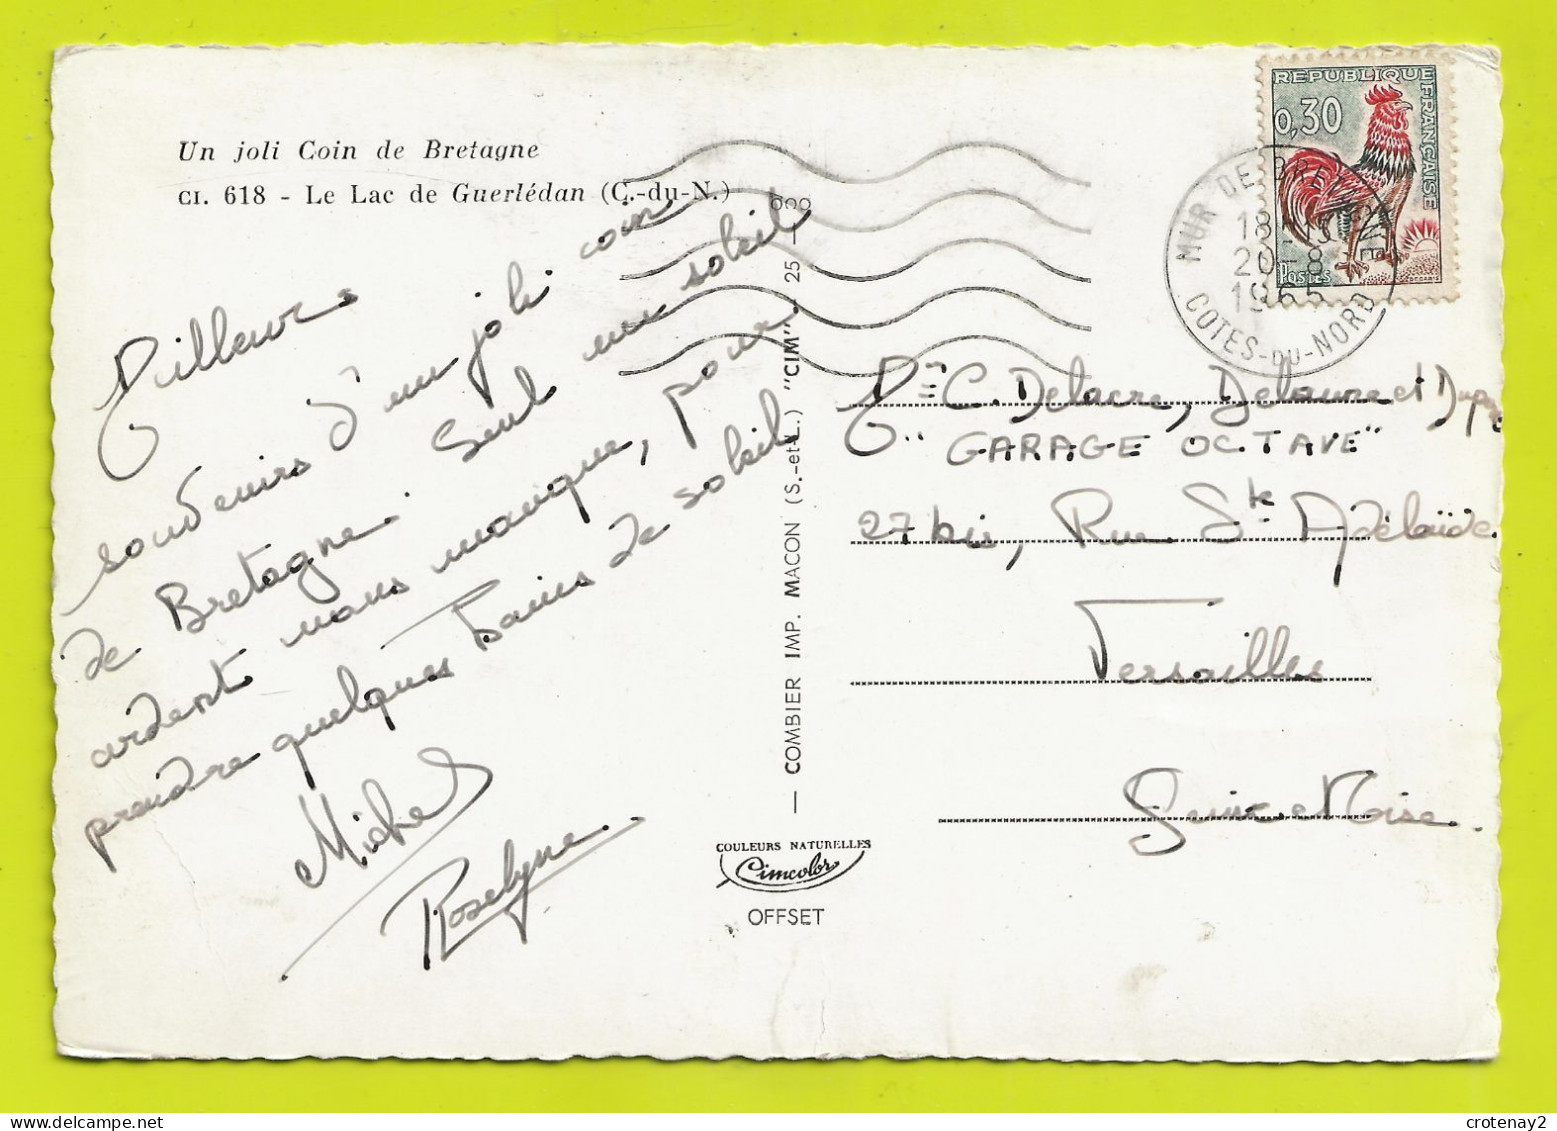 Un joli Coin de Bretagne
CI. 618 - Le Lac de Guerlédan (C.-du-N.)
Meilleurs
souvenirs d'un joli coin
de Bretagne. Seul un soleil
ardent nous manque, pour
prendre quelques bains de soleil
Michel
Roselyne.
— COMBIER IMP. MACON (S.-et-L.) "CIM". 25 —
COULEURS NATURELLES
Cimcolor
OFFSET
REPUBLIQUE FRANÇAISE
0,30
POSTES
MUR DE BRETAGNE
18
20-8
1965
COTES-DU-NORD
C. Delacre, Delaune et
"GARAGE OCTAVE"
27 bis, Rue Ste Adélaïde
Versailles
Seine et Oise.
crotenay2